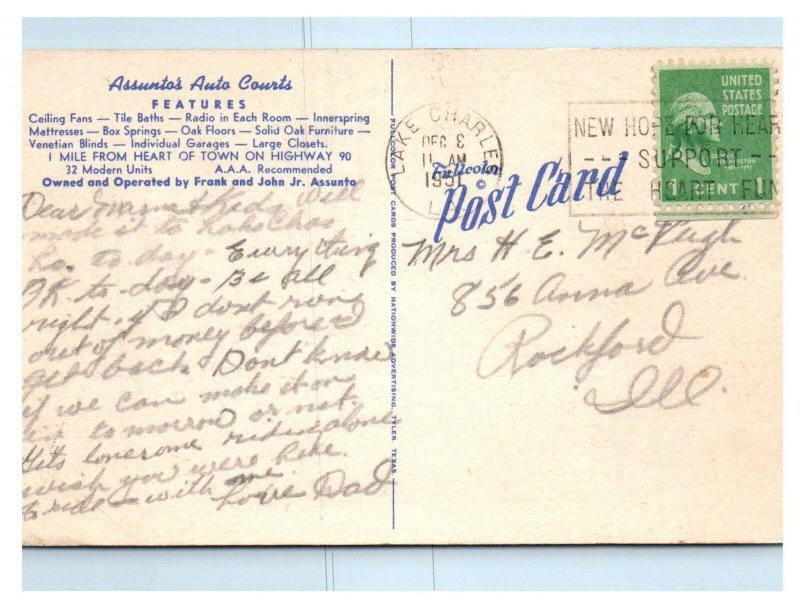 Assunto's Auto Courts
FEATURES
Ceiling Fans — Tile Baths — Radio in Each Room — Innerspring
Mattresses — Box Springs — Oak Floors — Solid Oak Furniture —
Venetian Blinds — Individual Garages — Large Closets.
1 MILE FROM HEART OF TOWN ON HIGHWAY 90
32 Modern Units A.A.A. Recommended
Owned and Operated by Frank and John Jr. Assunto
Dear Mama & Kids Will
made it to Lake Chas
La. to-day - Everything
OK to-day - Be All
right. if I dont run
out of money before I
get back. Dont know
if we can make it on
in to morrow or not.
Its lonesome riding alone
wish you were here
to ride with me.
Love Dad
FULLCOLOR POST CARDS PRODUCED BY NATIONWIDE ADVERTISING, TYLER, TEXAS
LAKE CHARLES
DEC 8
11 AM
1951
LA
Fullcolor
©
Post Card
NEW HOPE FOR HEAR
--- SUPPORT ---
THE HEART FUN
UNITED
STATES
POSTAGE
WASHINGTON
1 CENT 1
Mrs H. E. McPugh
856 Anna Ave.
Rockford
Ill.